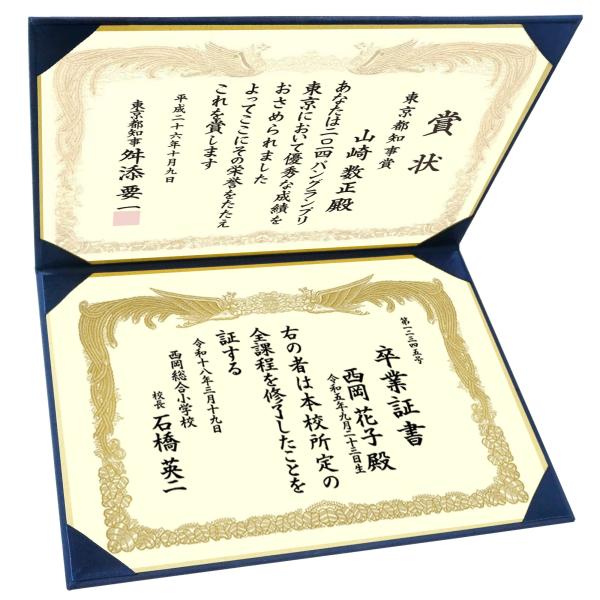 賞状
東京都知事賞
山崎数正殿
あなたは二〇一四パングランプリ
東京において優秀な成績を
おさめられました
よってここにその栄誉をたたえ
これを賞します
平成二十六年十月九日
東京都知事 舛添要一
第一二三四五号
卒業証書
西岡花子殿
令和五年九月二十三日生
右の者は本校所定の
全課程を修了したことを
証する
令和十八年三月十九日
西岡総合小学校
校長 石橋英二